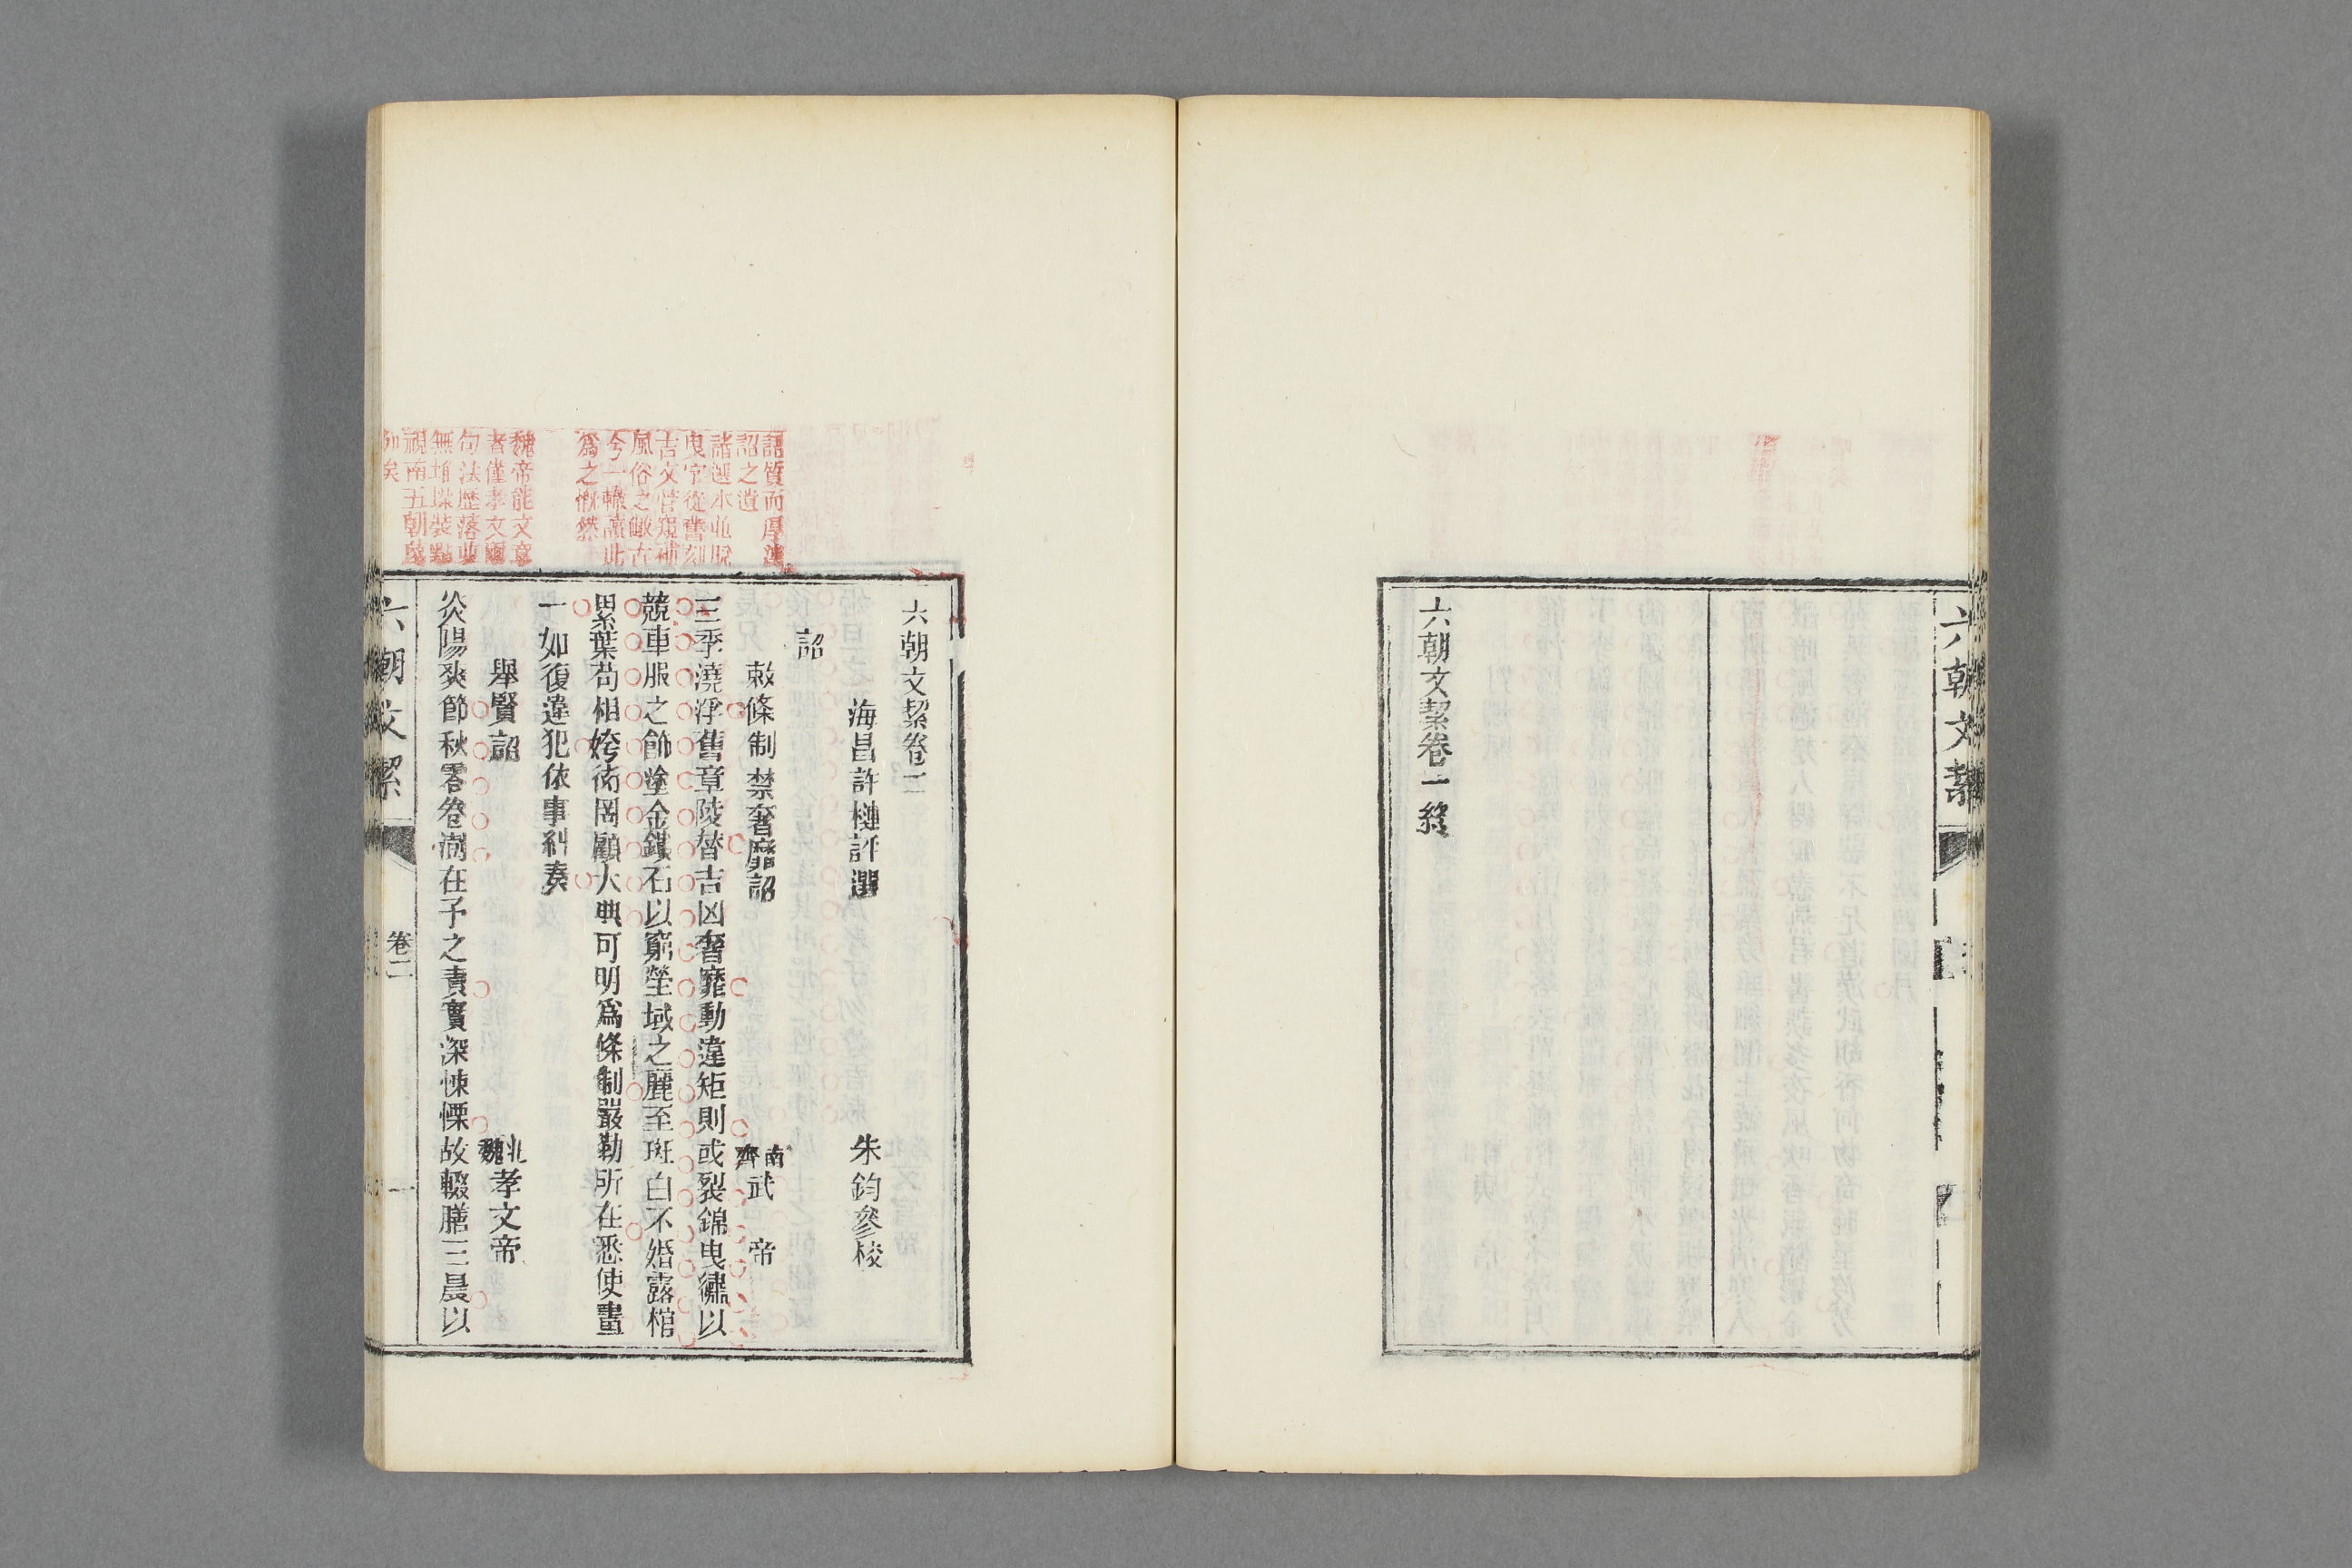 六朝文絜
六朝文絜卷一終
六朝文絜卷二
海昌許槤評選
朱鈞參校
詔
敕條制禁奢靡詔
南齊武帝
三季澆浮舊章陵替吉凶奢靡動違矩則或裂錦曳繡以
競車服之飾塗金鏤石以窮塋域之麗至斑白不婚露棺
累葉苟相姱衒罔顧大典可明爲條制嚴勒所在悉使畫
一如復違犯依事糾奏
舉賢詔
北魏孝文帝
炎陽爽節秋零卷澍在予之責實深悚慄故輟膳三晨以
語質而厚漢
詔之遺
諸選本並脫
曳字從舊刻
古文苑補
風俗之敝古
今一轍讀此
爲之慨然
魏帝能文章
者僅孝文爾
句法歷落並
無堆垛裝點
視南五朝蔑
如矣
六朝文絜
卷二
一